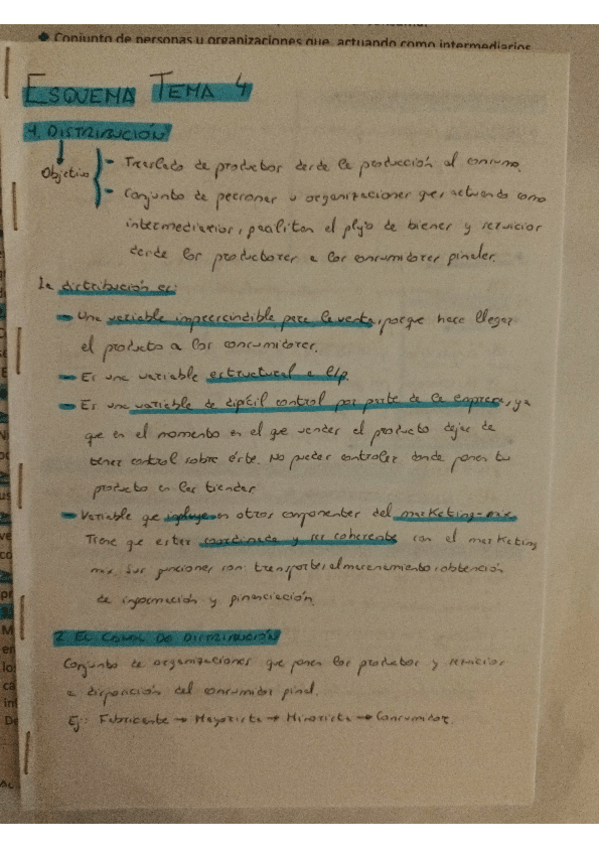 Conjunto de personas u organizaciones que, actuando como intermediarios
ESQUEMA TEMA 4
1. DISTRIBUCIÓN
Objetivo
- Traslado de productos desde la producción al consumo.
- Conjunto de personas u organizaciones que, actuando como
intermediarios, facilitan el flujo de bienes y servicios
desde los productores a los consumidores finales.
La distribución es:
- Una variable imprescindible para la venta, porque hace llegar
el producto a los consumidores.
- Es una variable estructural a l/p.
- Es una variable de difícil control por parte de la empresa, ya
que en el momento en el que vendes el producto dejas de
tener control sobre éste. No puedes controlar donde ponen tu
producto en las tiendas
- Variable que influye en otros componentes del marketing-mix.
Tiene que estar coordinada y ser coherente con el marketing
mix. Sus funciones son transportes, almacenamiento, obtención
de información y financiación.
2. EL CANAL DE DISTRIBUCIÓN
Conjunto de organizaciones que ponen los productos y servicios
a disposición del consumidor final.
Ej: Fabricante → Mayorista → Minorista → Consumidor.